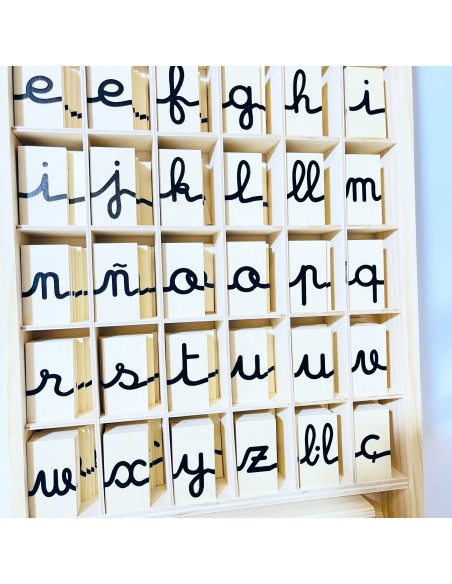 e e f g h i
i j k l ll m
n ñ o o p q
r s t u u v
w x y z l·l ç